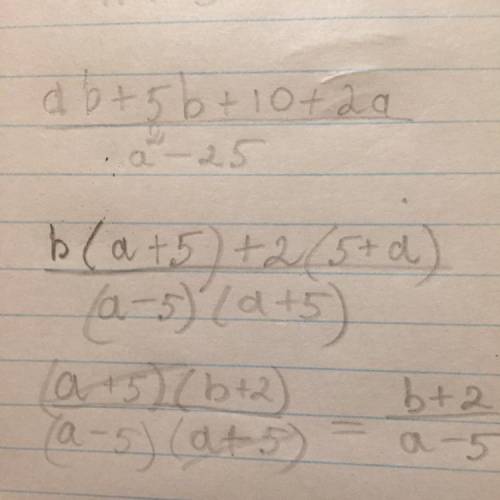 ab+5b+10+2a
a²-25
b(a+5)+2(5+a)
(a-5)(a+5)
(a+5)(b+2)
(a-5)(a+5)
=
b+2
a-5